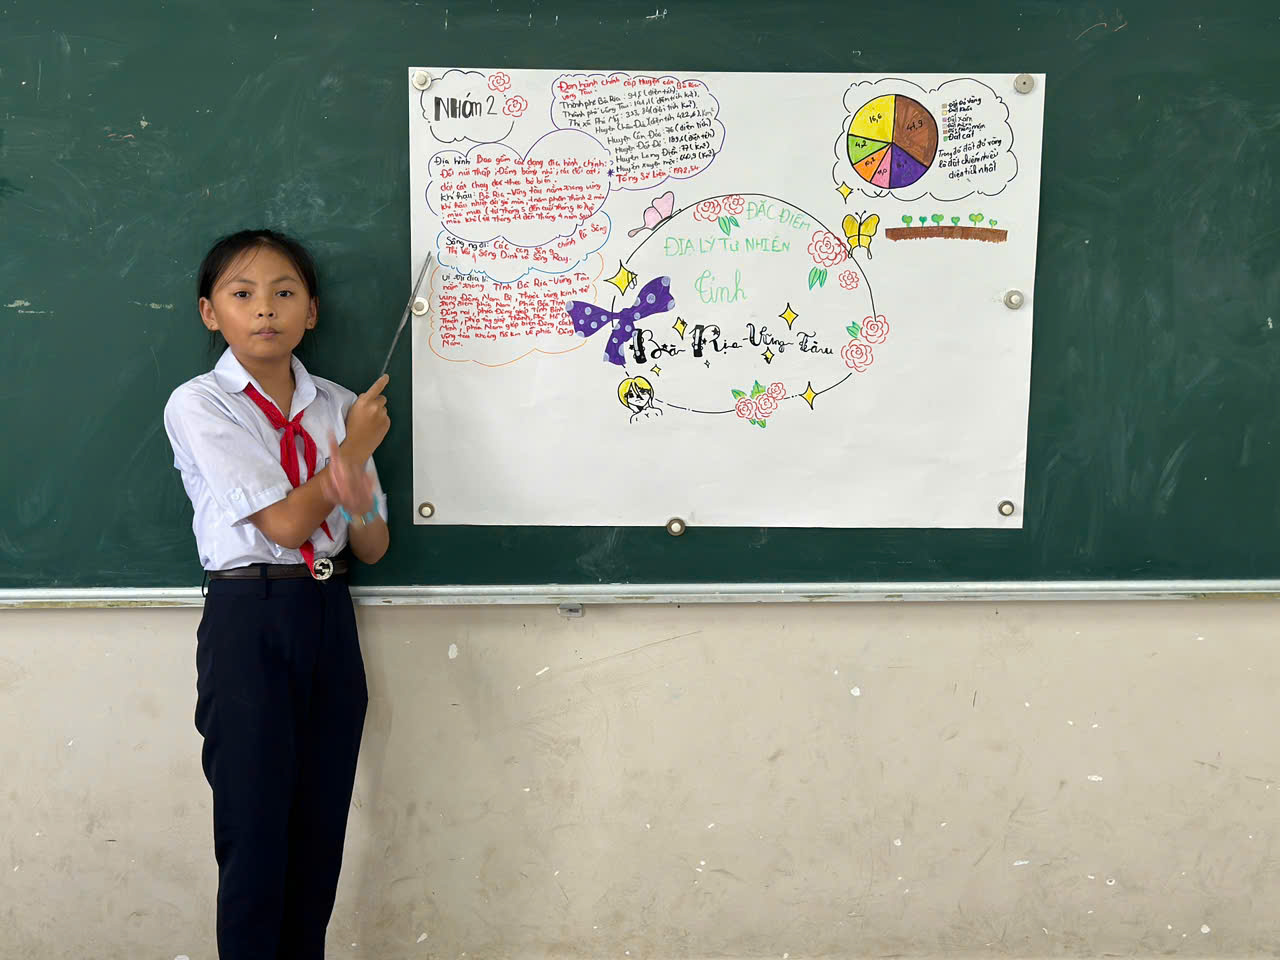 NHÓM 2
Đơn hành chính cấp Huyện của Bà Rịa
Vũng Tàu:
Thành phố Bà Rịa: 91,5 (diện tích)
Thành phố Vũng Tàu: 141,1 (diện tích km²)
Thị xã Phú Mỹ: 333,84 (diện tích km²)
Huyện Châu Đức (diện tích 422,6) km²
Huyện Côn Đảo: 76 (diện tích)
Huyện Đất Đỏ: 189,6 (diện tích)
Huyện Long Điền: 77 (km²)
Huyện xuyên mộc: 640,9 (km²)
Tổng Số Liệu: 1972,54
Địa hình: Bao gồm các dạng địa hình, chính:
Đồi núi Thấp, Đồng bằng nhỏ; các đồi cát;
dải cát chạy dọc theo bờ biển.
khí hậu: Bà Rịa-Vũng Tàu nằm trong vùng
khí hậu nhiệt đới gió mùa, 1 năm phân Thành 2 mùa
mùa mưa (từ tháng 5 đến cuối tháng 10)
mùa khô (từ tháng 11 đến tháng 4 năm sau)
Sông ngòi: Các con sông chính là Sông
Thị Vải, Sông Dinh và Sông Ray.
Vị trí địa lí
nằm trong Tỉnh Bà Rịa-Vũng Tàu
vùng Đông Nam Bộ, Thuộc vùng kinh tế
trọng điểm phía Nam, Phía Bắc Tỉnh
Đồng nai, phía Đông giáp Tỉnh Bình
Thuận, phía tây giáp Thành Phố Hồ Chí
Minh, phía Nam giáp biển Đông, cách
Vũng tàu khoảng km về phía Đông
Nam.
ĐẶC ĐIỂM
ĐỊA LÝ TỰ NHIÊN
Tỉnh
Bà Rịa-Vũng Tàu
16,6
41,9
4,2
Đất đỏ vàng
Đất xám
Đất cát
Trong đó đất đỏ vàng
là đất chiếm nhiều
diện tích nhất